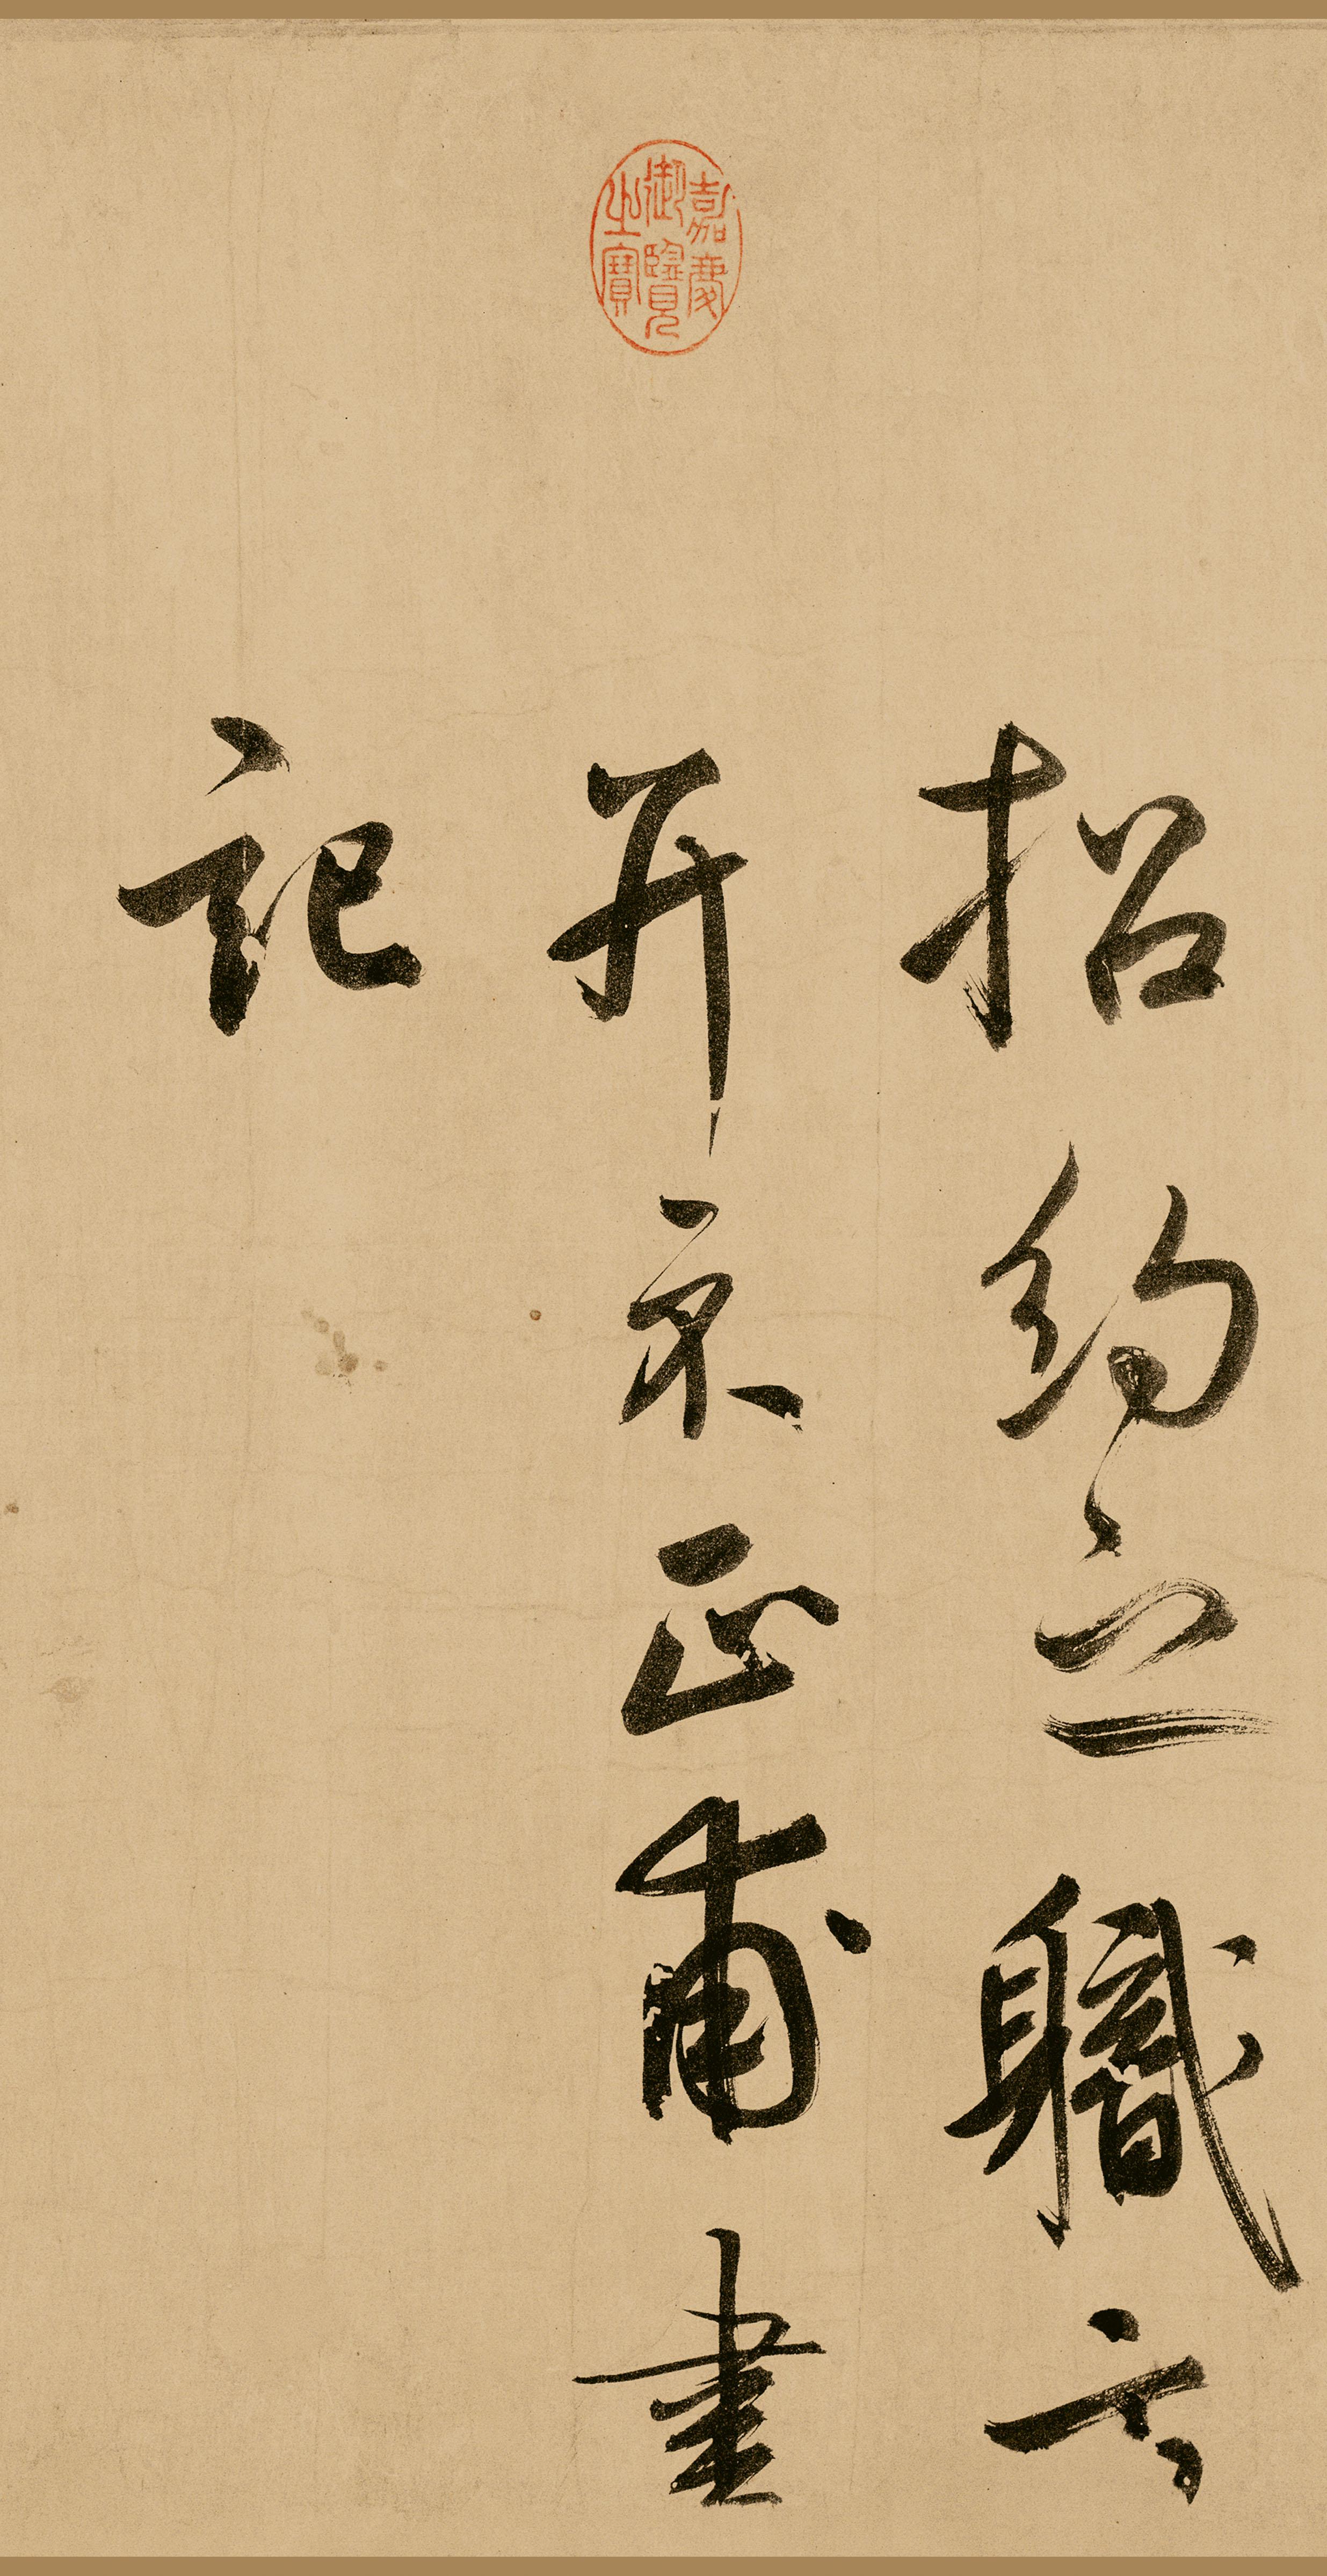 嘉慶御覽之寶
招約之職云
并京正甫書
記